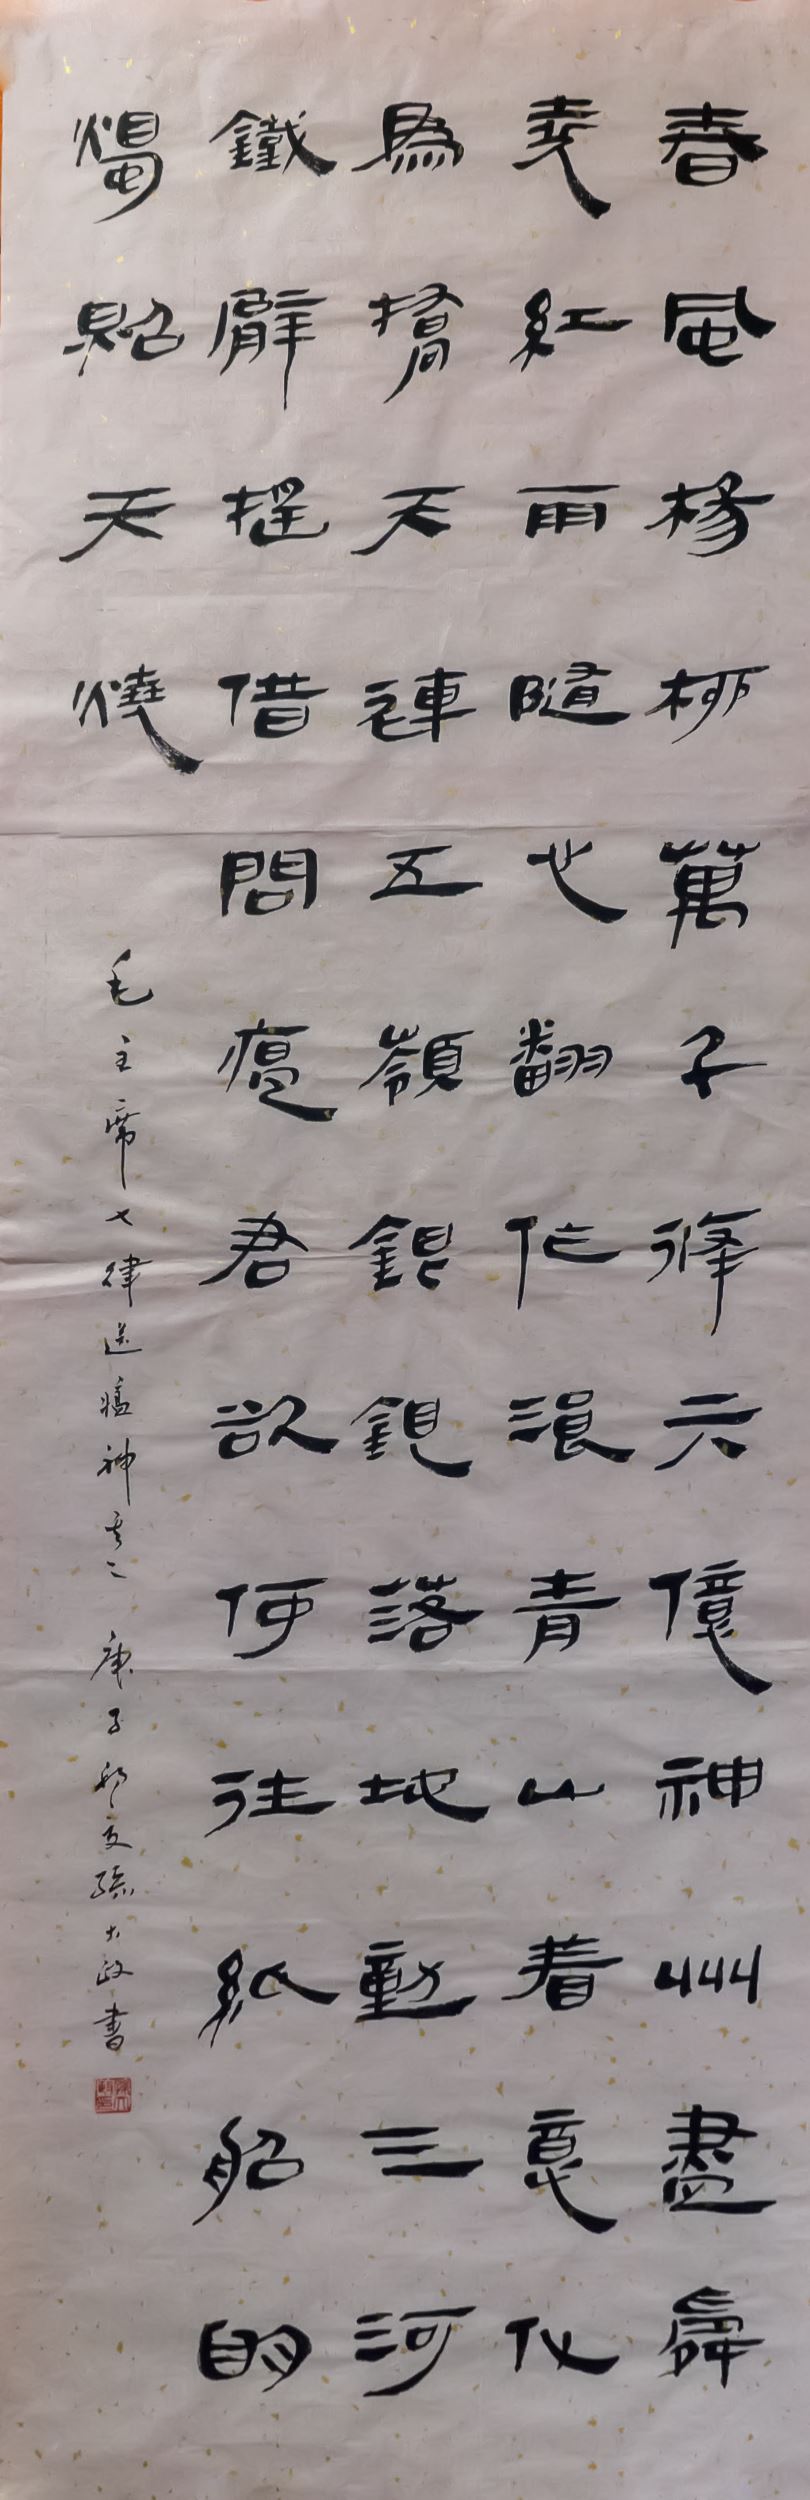 春風楊柳萬千條六億神州盡舜
堯紅雨隨心翻作浪青山着意化
為橋天連五嶺銀鋤落地動三河
鐵臂搖借問瘟君欲何往紙船明
燭照天燒
毛主席七律送瘟神其二 庚子
大政書